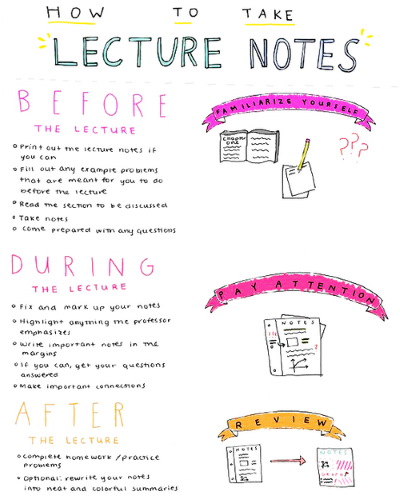 HOW TO TAKE
LECTURE NOTES
BEFORE
THE LECTURE
FAMILIARIZE YOURSELF
Print out the lecture notes if
you can
Fill out any example problems
that are meant for you to do
before the lecture
Read the section to be discussed
Take notes
Come prepared with any questions
???
DURING
THE LECTURE
PAY ATTENTION
Fix and mark up your notes
Highlight anything the professor
emphasizes
Write important notes in the
margins
If you can, get your questions
answered
Make important connections
NOTES
AFTER
THE LECTURE
REVIEW
Complete homework / practice
problems
Optional: rewrite your notes
into neat and colorful summaries
NOTES
NOTES